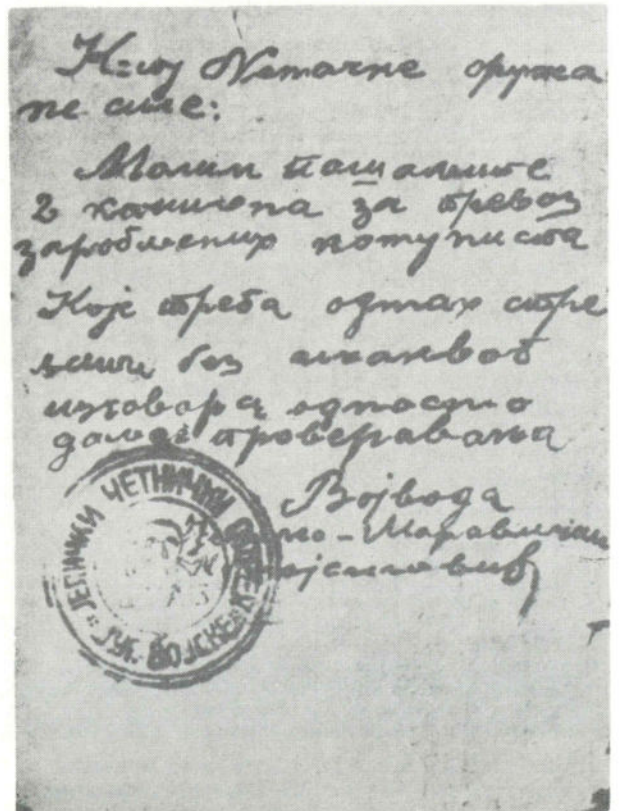 Немачке оружа
не силе:
Молим пошаљите
2 камиона за превоз
заробљених комуниста
Које треба одмах стре
љати без икаквог
изговора односно
даљег проверавања
Војвода
Моравички
ЈЕЛИЧКИ ЧЕТНИЧКИ
ЈУГ. ВОЈСКЕ